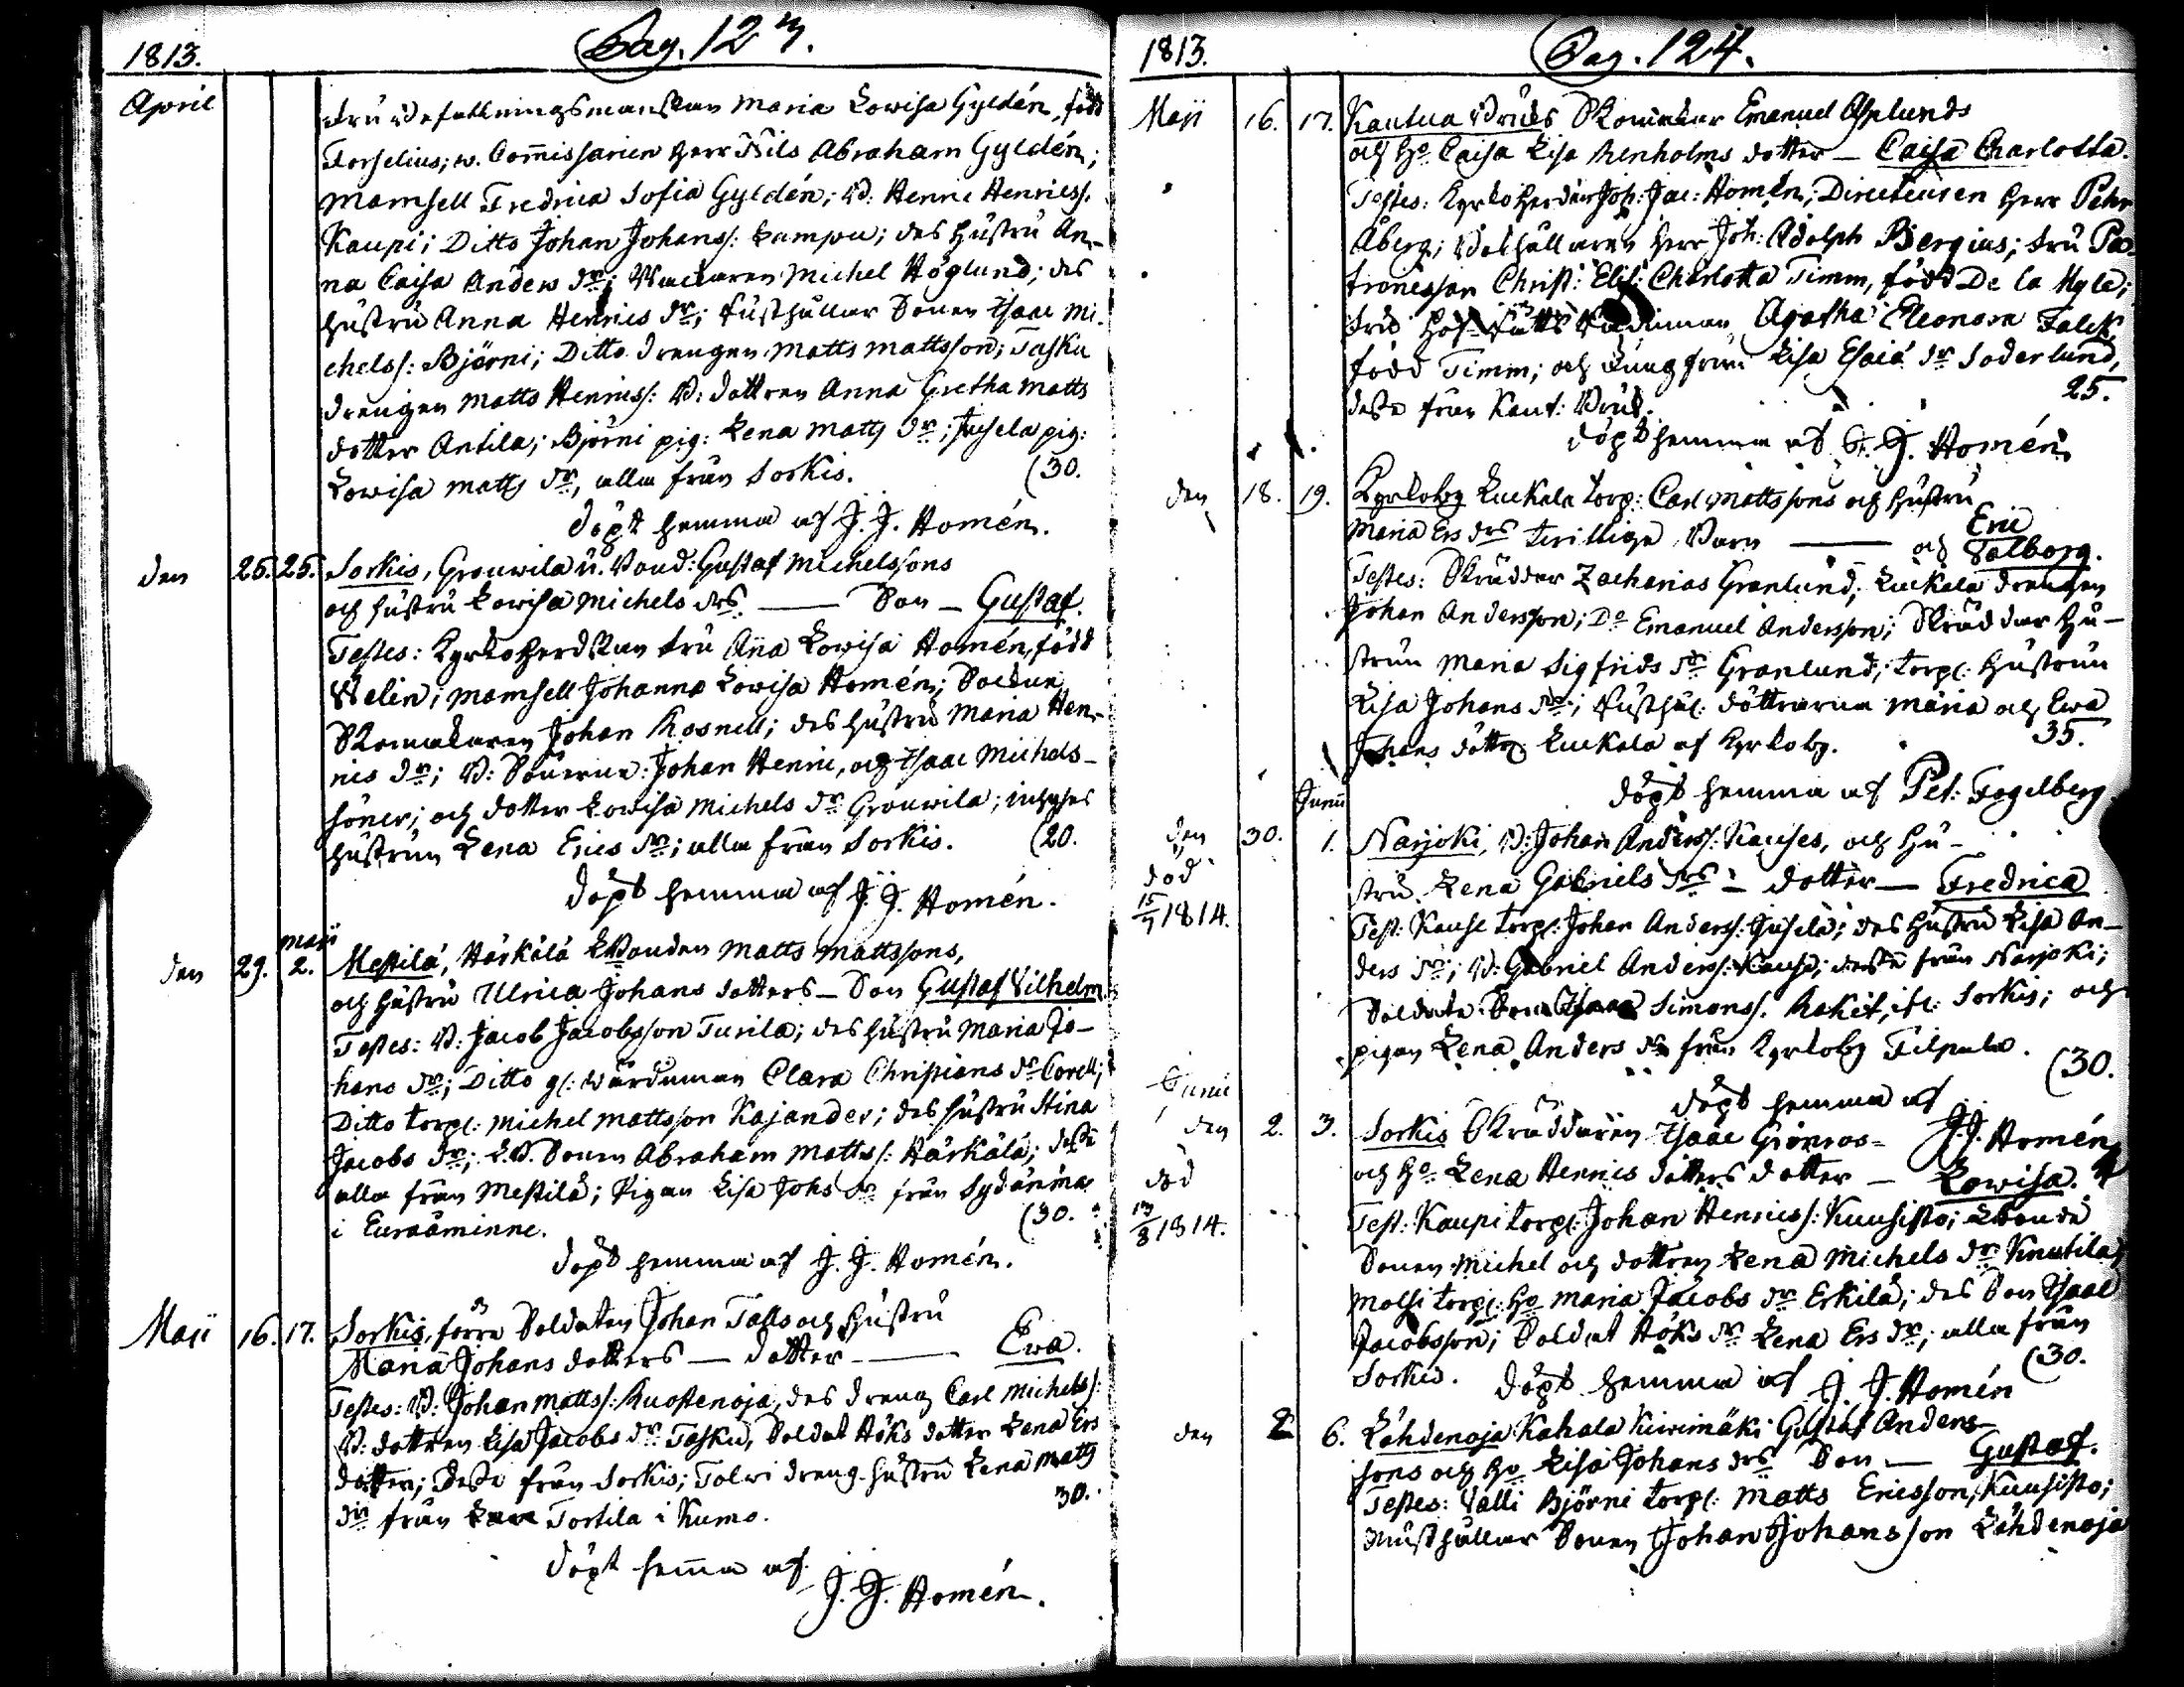 1813.
Pag. 123.
April
fru Befallningsmanskan Maria Lowisa Gyldén, född
Forselius; w. Commissarien Herr Nils Abraham Gyldén;
Mamsell Fredrica Sofia Gyldén; B: Henric Henricss:
Kaupi; Ditto Johan Johanss: Lampen; des hustru An-
na Caisa Anders dr; Michel Höglund; des
hustru Anna Henrics dr; Rusthållar Sonen Isaac Mi-
chelss: Björni; Ditto drengen Matts Mattsson; Tasku
drengen Matts Henricss: B: dottren Anna Gretha Matts
dotter Antila; Björni pig: Lena Matts dr; pig:
Lowisa Matts dr, alla från Sorkis. (30.
döpt hemma af J. J. Homén.
den 25. 25. Sorkis, Grouwila u. Bond: Gustaf Michelssons
och hustru Lowisa Michels drs — Son — Gustaf.
Testes: Kyrkoherdskan fru Anna Lowisa Homén, född
Welin; Mamsell Johanna Lowisa Homén; Sockne
Skomakaren Johan Rosnell; des hustru Maria Hen-
rics dr; B: Sönerne: Johan Henric, och Isaac Michels-
söner; och dotter Lowisa Michels dr Grouwila; inhyses
hustrun Lena Erics dr; alla från Sorkis. (20.
döpt hemma af J. J. Homén.
Maji
den 29. 2. Mestilä, Härkälä LBonden Matts Mattssons,
och hustru Ulrica Johans dotters — Son Gustaf Vilhelm
Testes: B: Jacob Jacobsson Turila; des hustru Maria Jo-
hans dr; Ditto gl: Wärdinnan Clara Christians dr Corell;
Ditto torp: Michel Mattsson Kajander; des hustru Stina
Jacobs dr; L.B. Sonen Abraham Mattss: Härkälä; desse
alla från Mestilä; Pigan Lisa Johs dr från Sydänmaa
i Euraåminne. (30.
döpt hemma af J. J. Homén.
Maji 16. 17. Sorkis, förre Soldaten Johan Talls och hustru
Maria Johans dotters — dotter — Ewa.
Testes: B: Johan Mattss: Ruostenoja, des dreng Carl Michelss:
B: dottren Lisa Jacobs dr Tasku, Soldat Höks dotter Lena Ers
dotter; desse från Sorkis; Talwi dreng hustru Lena Matts
dr från Tortila i Kumo. 30.
döpt hemma af
J. J. Homén.
1813.
Pag. 124.
Maji 16. 17. Kautua Bruks Skomakar Emanuel Asplunds
och ho Caisa Lisa Renholms dotter — Caisa Charlotta.
Testes: Kyrkoherden Joh: Jac: Homén; Directeuren Herr Petter
Åberg; Bokhållaren Herr Joh: Adolph Bergius; fru Pa-
tronessan Christ: Elis: Charlotta Timm, född De la Myle;
Agatha Eleonora Falck
född Timm; och Jungfrun Lisa Esaiæ dr Söderlund,
desse från Kaut: Bruk. 25.
döpt hemma af J. J. Homén
den 18. 19. Kyrkoby Luckala torp: Carl Mattssons och hustru
Maria Ers drs tvillige Barn — Eric
och Valborg.
Testes: Skräddar Zacharias Granlund; Luckala drengen
Johan Andersson; Do Emanuel Andersson; Skräddar hu-
strun Maria Sigfrids dr Granlund; torp: hustrun
Lisa Johans dr; Rusthål: döttrarna Maria och Ewa
Johans döttr Luckala af Kyrkoby. 35.
döpt hemma af Pet: Fogelberg
Junii
den 30. 1. Narjoki, B: Johan Anderss: Kauses, och hu-
strus Lena Gabriels drs — dotter — Fredrica
död
15/7 1814.
Test: Kause torp: Johan Anderss: Jusela; des hustru Lisa An-
ders dr; B: Gabriel Anderss: Kause; desse från Narjoki;
Soldats Sonen Isaac Simonss: Raket, ifr: Sorkis; och
pigan Lena Anders dr från Kyrkoby Filpula. (30.
döpt hemma af
J. J. Homén
Junii
den 2. 3. Sorkis Skräddaren Isaac Grönroos
och ho Lena Henrics dotters dotter — Lowisa.
död
13/8 1814.
Test: Kaupi torp: Johan Henricss: Kuusisto; LBonde
Sonen Michel och dottren Lena Michels dr Knutila;
Molsi torp: ho Maria Jacobs dr Erkilä; des Son Isaac
Jacobsson; Soldat Höks dr Lena Ers dr; alla från
Sorkis. (30.
döpt hemma af J. J. Homén
den 2 6. Lähdenoja Kahala Kiwimäki Gustaf Anders-
sons och ho Lisa Johans drs Son — Gustaf.
Testes: Valli Björni torp: Matts Ericsson, Kuusisto;
Rusthållar Sonen Johan Johansson Lähdenoja